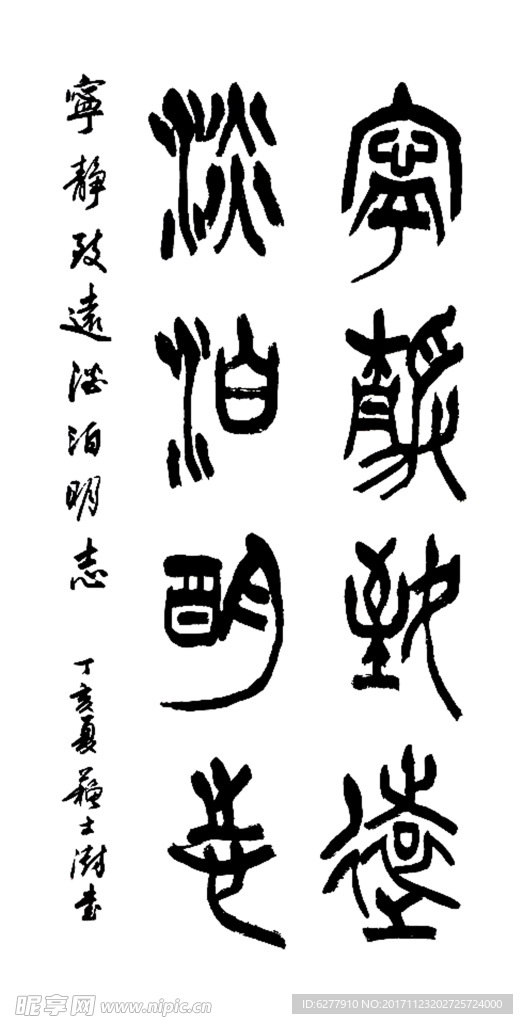 寧靜致遠
淡泊明志
寧靜致遠淡泊明志
丁亥夏蘇士澍書
昵享网 www.nipic.cn
ID:6277910 NO:20171123202725724000